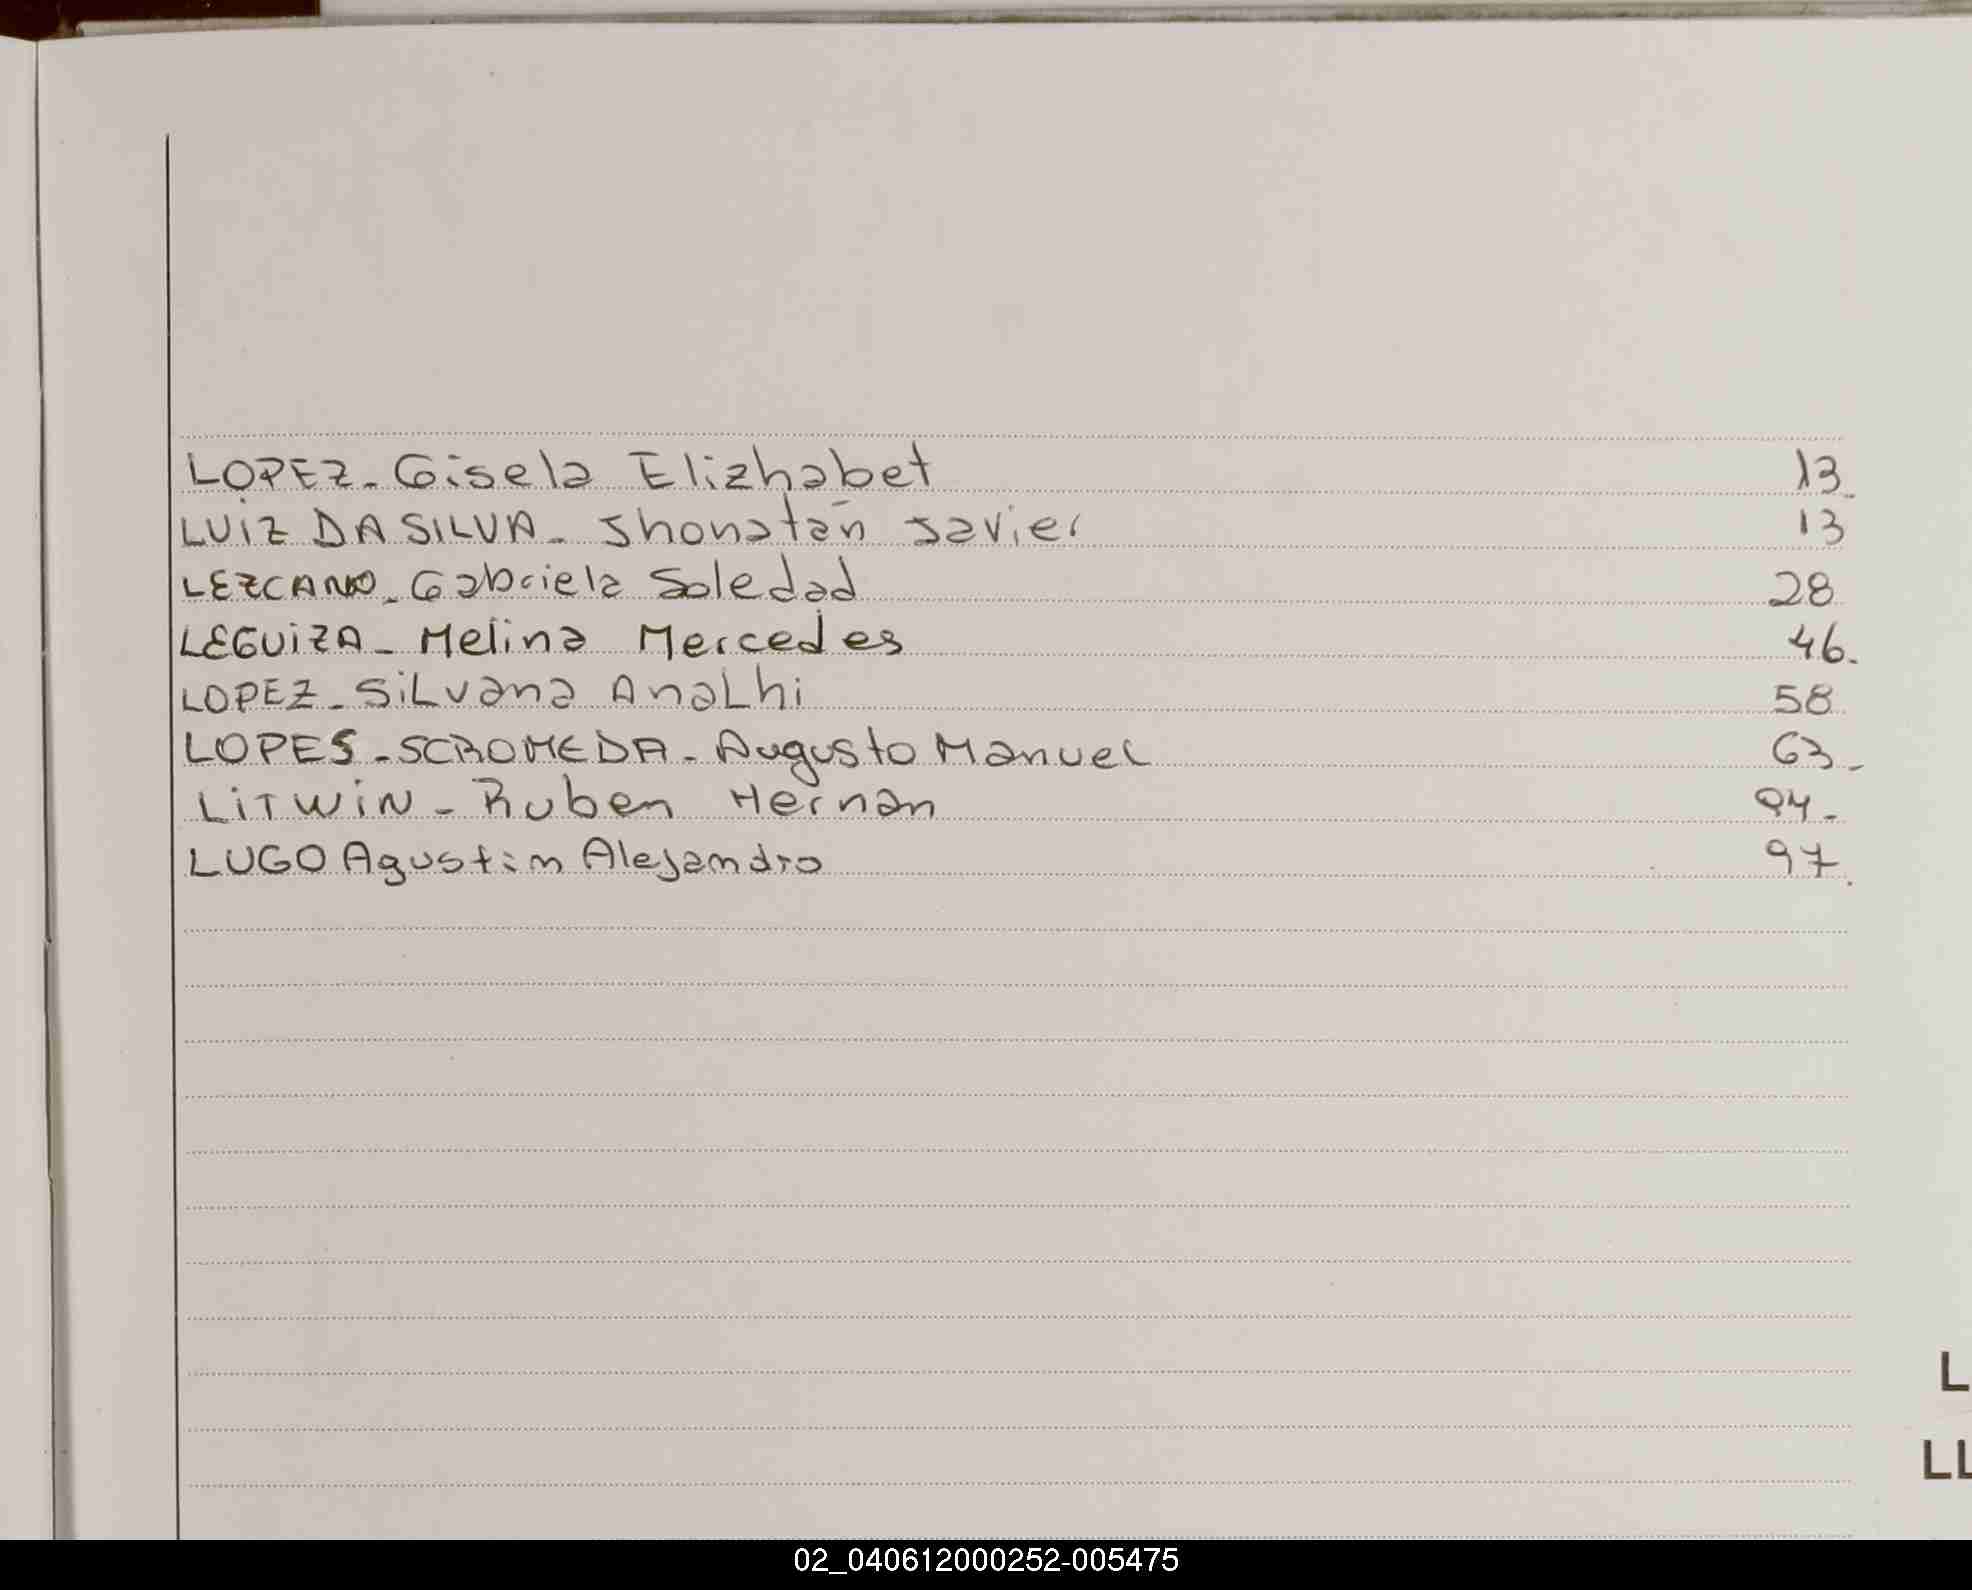 LOPEZ - Gisela Elizhabet 13
LUiZ DA SILVA - Jhonatan Javier 13
LEZCANO - Gabriela Soledad 28
LEGUiZA - Melina Mercedes 46.
LOPEZ - SiLvana AnaLhi 58
LOPES - SCROMEDA - Augusto Manuel 63 -
LiTWiN - Ruben Hernan 94 -
LUGO Agustin Alejandro 97.
L
LL
02_040612000252-005475